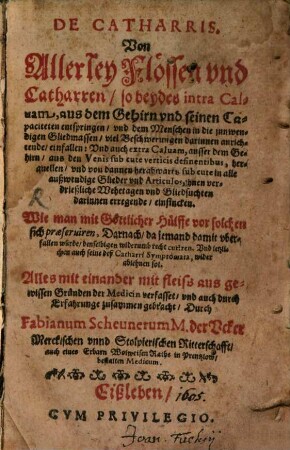 DE CATHARRIS.
Von
Allerley Flössen vnd
Catharren / so beydes intra Cal-
uam, aus dem Gehirn vnd seinen Ca-
paciteten entspringen / vnd dem Menschen in die innwen-
digen Gliedmassen / viel Beschwerungen darinnen anrich-
tende / einfallen / Vnd auch extra Caluam, ausser dem Ge-
hirn / aus den Venis sub cute verticis desinentibus, her-
quellen / vnd von dannen herabwarts sub cute in alle
auswendige Glieder vnd Articulos, jnen ver-
drießliche Wehetagen vnd Gliedsuchten
darinnen erregende / einsincken.
Wie man mit Göttlicher Hülffe vor solchen
sich præseruiren. Darnach / da jemand damit vber-
fallen würde / denselbigen widerumb recht curiren. Vnd letzt-
lichen auch seine des Catharri Symptomata, wider
ablehnen sol.
Alles mit einander mit fleiß aus ge-
wissen Gründen der Medicin verfasset / vnd auch durch
Erfahrunge zusammen gebracht / Durch
Fabianum Scheunerum M. der Vcker
Merckischen vnnd Stolpirischen Ritterschafft /
auch eines Erbarn Wolweisen Raths in Prentzlow /
bestalten Medicum.
Eißleben / 1605.
CVM PRIVILEGIO.
Joan.